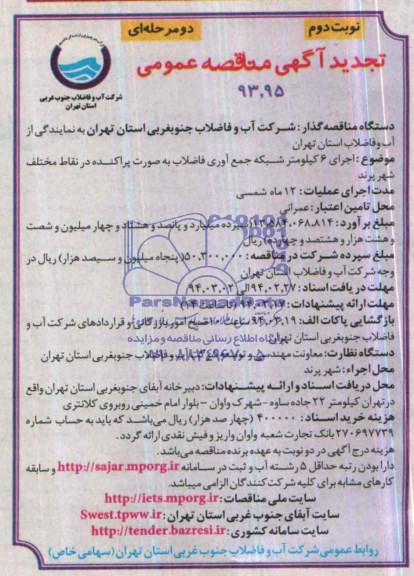 نوبت دوم
دو مرحله‌ای
تجدید آگهی مناقصه عمومی
۹۳,۹۵
شرکت آب و فاضلاب جنوب غربی
استان تهران
دستگاه مناقصه گذار: شرکت آب و فاضلاب جنوبغربی استان تهران به نمایندگی از
آب وفاضلاب استان تهران
موضوع: اجرای ۶ کیلومتر شبکه جمع آوری فاضلاب به صورت پراکنده در نقاط مختلف
شهر پرند
مدت اجرای عملیات: ۱۲ ماه شمسی
محل تامین اعتبار: عمرانی
مبلغ برآورد: ۱۳,۵۸۴,۰۶۸,۸۱۴ (سیزده میلیارد و پانصد و هشتاد و چهار میلیون و شصت
و هشت هزار و هشتصد و چهارده) ریال
مبلغ سپرده شرکت در مناقصه: ۵۰,۳۰۰,۰۰۰ (پنجاه میلیون و سیصد هزار) ریال در
وجه شرکت آب و فاضلاب استان تهران
مهلت دریافت اسناد: ۹۴,۰۲,۲۷ الی ۹۴,۰۳,۰۲
مهلت ارائه پیشنهادات: ۹۴,۰۳,۱۷
بازگشایی پاکات الف: ۹۴,۰۳,۱۹ ساعت ۱۰ صبح امور بازرگانی و قراردادهای شرکت آب و
فاضلاب جنوبغربی استان تهران
دستگاه نظارت: معاونت مهندسی و توسعه شرکت آب و فاضلاب جنوبغربی استان تهران
محل اجراء: شهر پرند
محل دریافت اسناد و ارائه پیشنهادات: دبیرخانه آبفای جنوبغربی استان تهران واقع
در تهران کیلومتر ۲۲ جاده ساوه - شهرک واوان - بلوار امام خمینی روبروی کلانتری
هزینه خرید اسناد: ۴۰۰۰۰۰ (چهار صد هزار) ریال می‌باشد که باید به حساب شماره
۲۷۰۶۹۷۷۳۹ بانک تجارت شعبه واوان واریز و فیش نقدی ارائه گردد.
هزینه درج آگهی در دو نوبت به عهده برنده مناقصه می‌باشد.
دارا بودن رتبه حداقل ۵ رشته آب و ثبت در سامانه http://sajar.mporg.ir و سابقه
کارهای مشابه برای کلیه شرکت کنندگان الزامی میباشد.
سایت ملی مناقصات: http://iets.mporg.ir
سایت آبفای جنوب غربی استان تهران: Swest.tpww.ir
سایت سامانه کشوری: http://tender.bazresi.ir
روابط عمومی شرکت آب و فاضلاب جنوب غربی استان تهران (سهامی خاص)